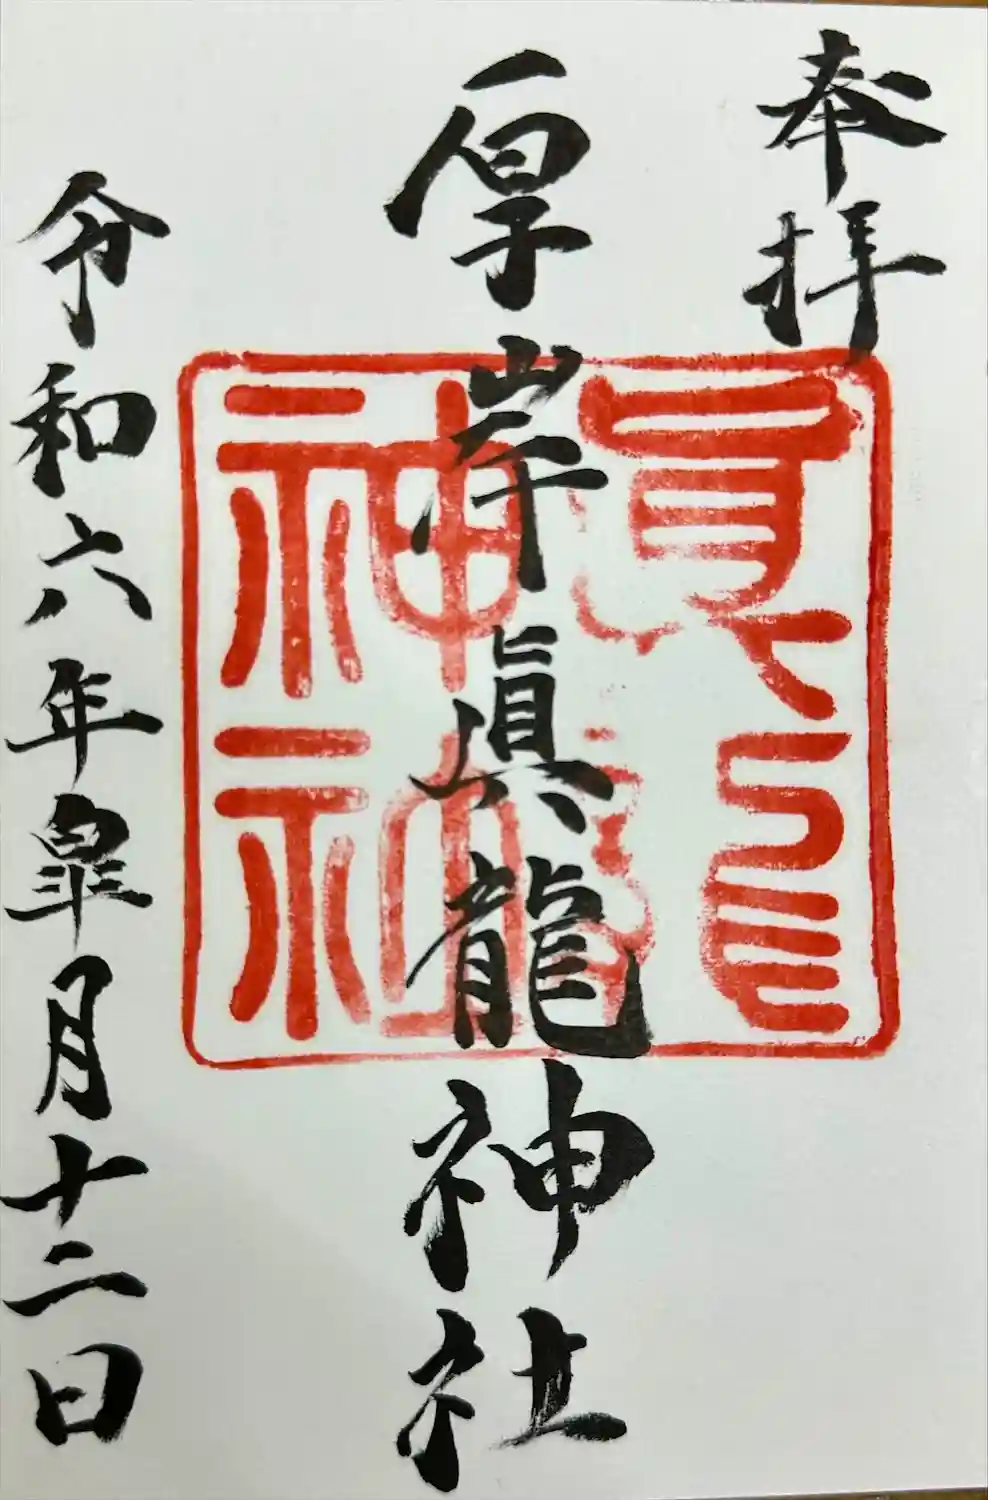 奉拝
厚岸眞龍神社
令和六年皐月十二日